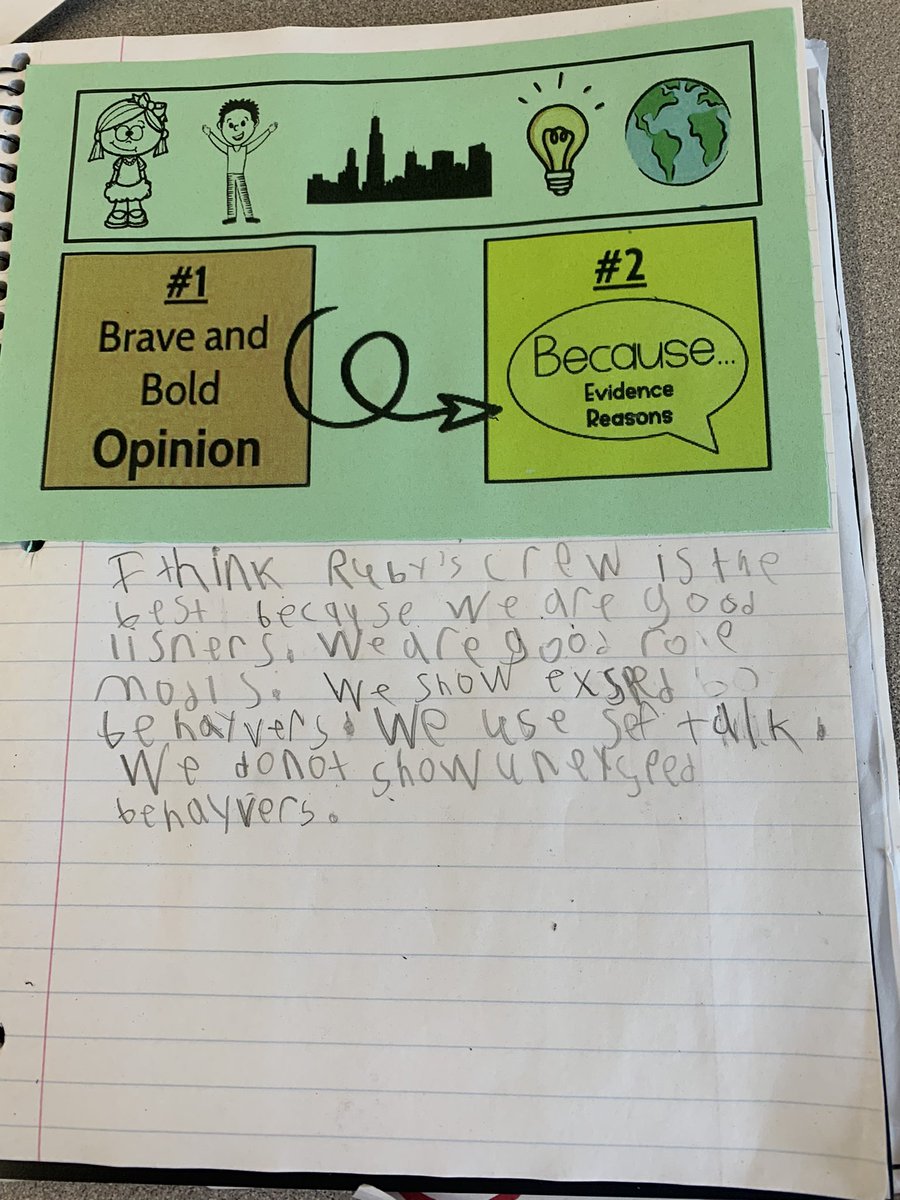 #1
Brave and
Bold
Opinion
#2
Because...
Evidence
Reasons
I think Ruby's crew is the
best becayse we are good
lisners. We are good role
modls. We show exsped
behayvers. We use sef talk.
We do not show unexsped
behayvers.